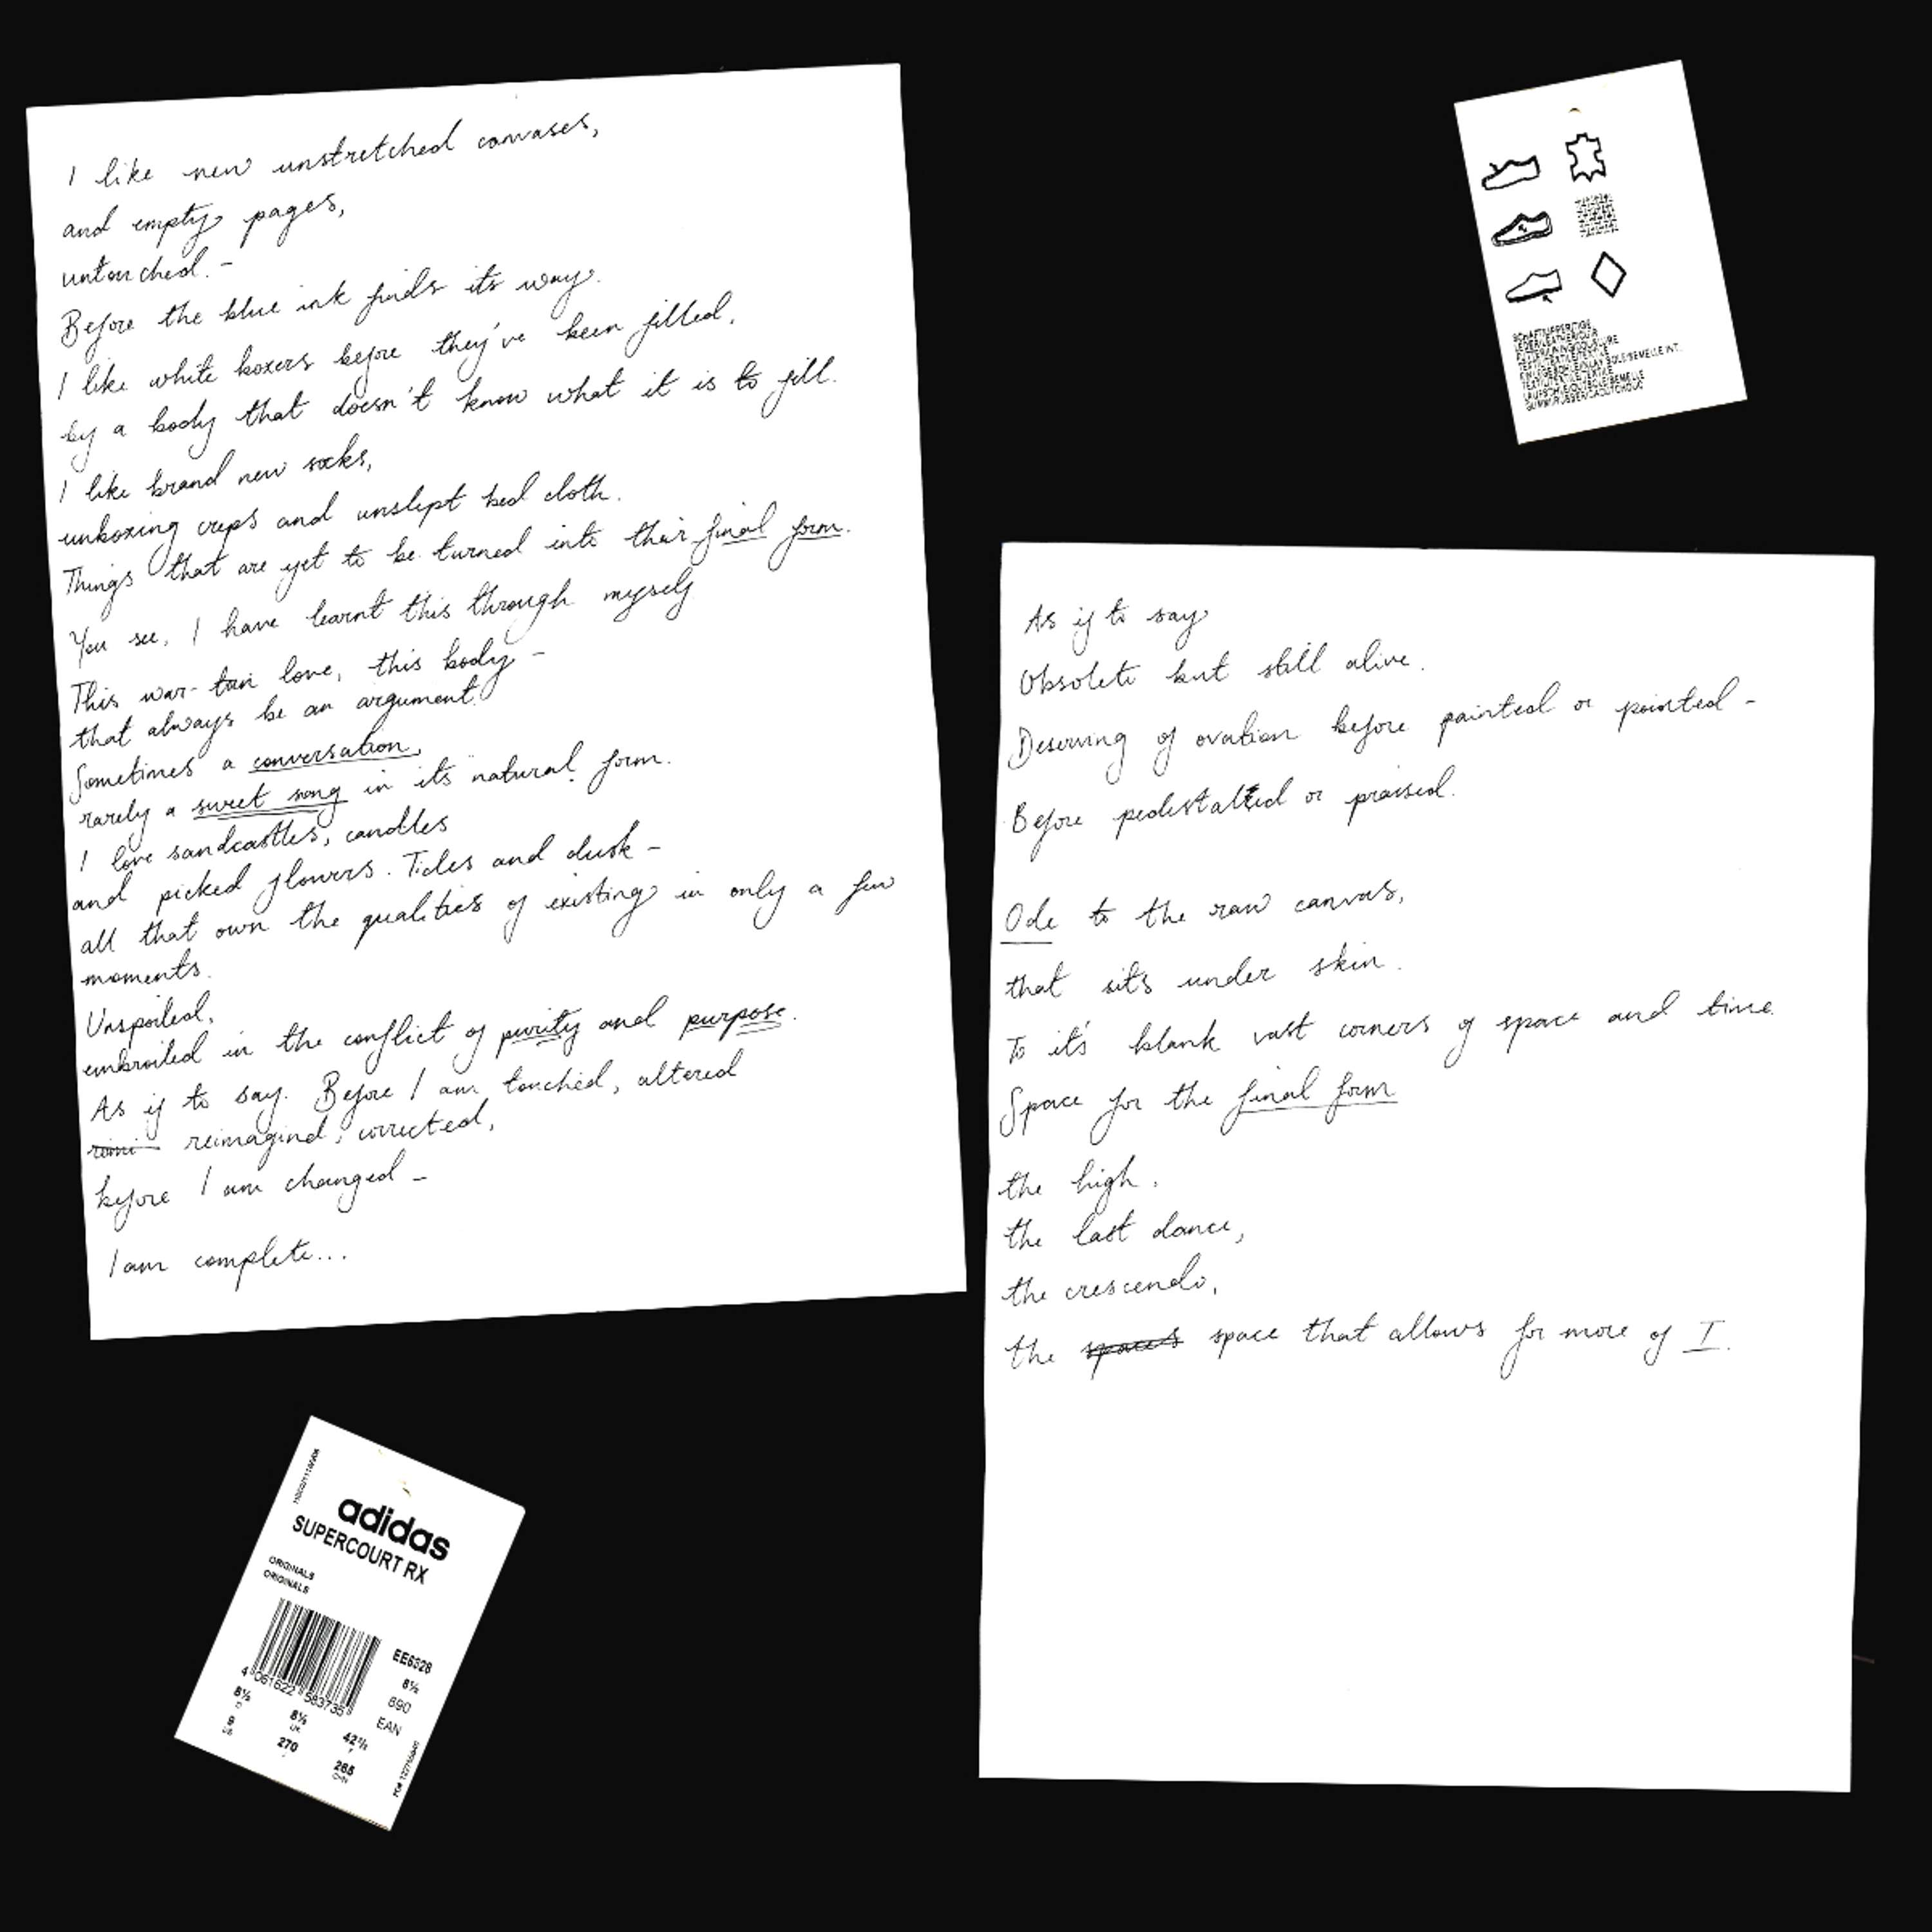 I like new unstretched canvases,
and empty pages,
untouched. -
Before the blue ink finds its way.
I like white boxers before they've been filled,
by a body that doesn't know what it is to fill.
I like brand new socks,
unboxing creps and unslept bed cloth.
Things that are yet to be turned into their final form.
You see, I have learnt this through myself
This war-torn love, this body -
that always be an argument.
Sometimes a conversation,
rarely a sweet song in its natural form.
I love sandcastles, candles
and picked flowers. Tides and dusk -
all that own the qualities of existing in only a few
moments.
Unspoiled,
embroiled in the conflict of purity and purpose.
As if to say. Before I am touched, altered
reimagined, corrected,
before I am changed -
I am complete...
As if to say
Obsolete but still alive.
Deserving of ovation before painted or pointed -
Before pedestalled or praised.
Ode to the raw canvas,
that sits under skin.
To it's blank vast corners of space and time.
Space for the final form
the high.
the last dance,
the crescendo,
the spaces space that allows for more of I.
adidas
SUPERCOURT RX
ORIGINALS
ORIGINALS
EE6328
8½
690
EAN
4 061622 583735
8½ 8½ 42⅔
D UK F
9 270 265
US CHN